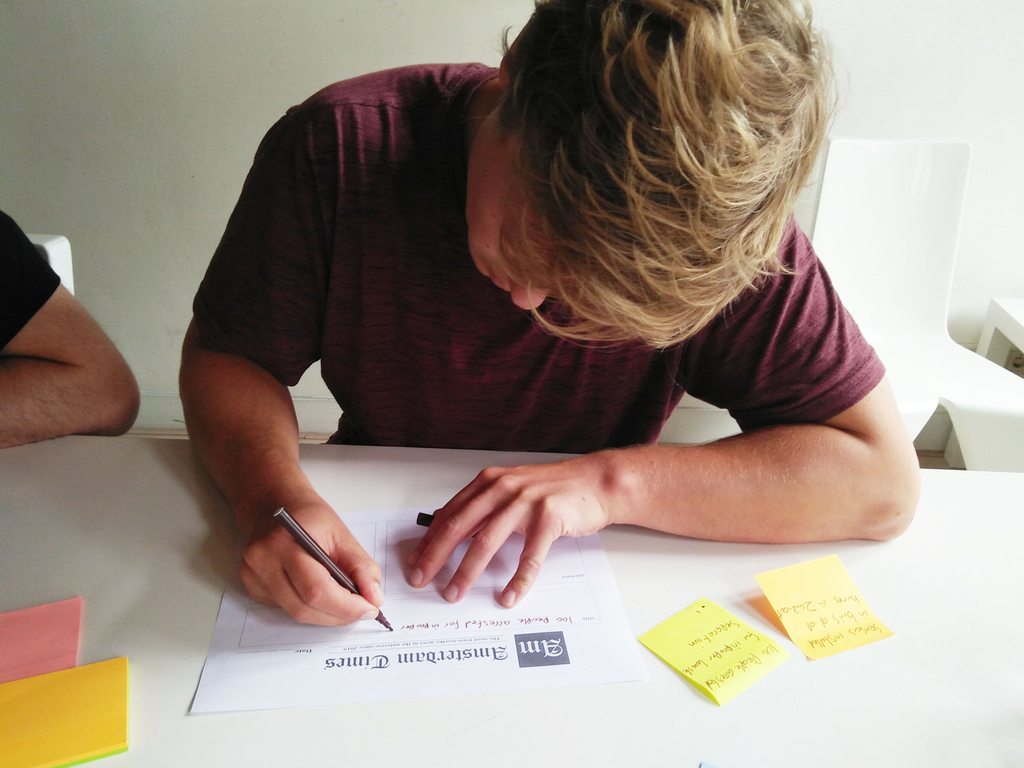 Am
Amsterdam Times
The most trustworthy news in the universe since 2019
Date:
title:
100 People arrested for improper
picture:
100 People arrested
for improper waste
Separation
Sensors installed
in bins of all